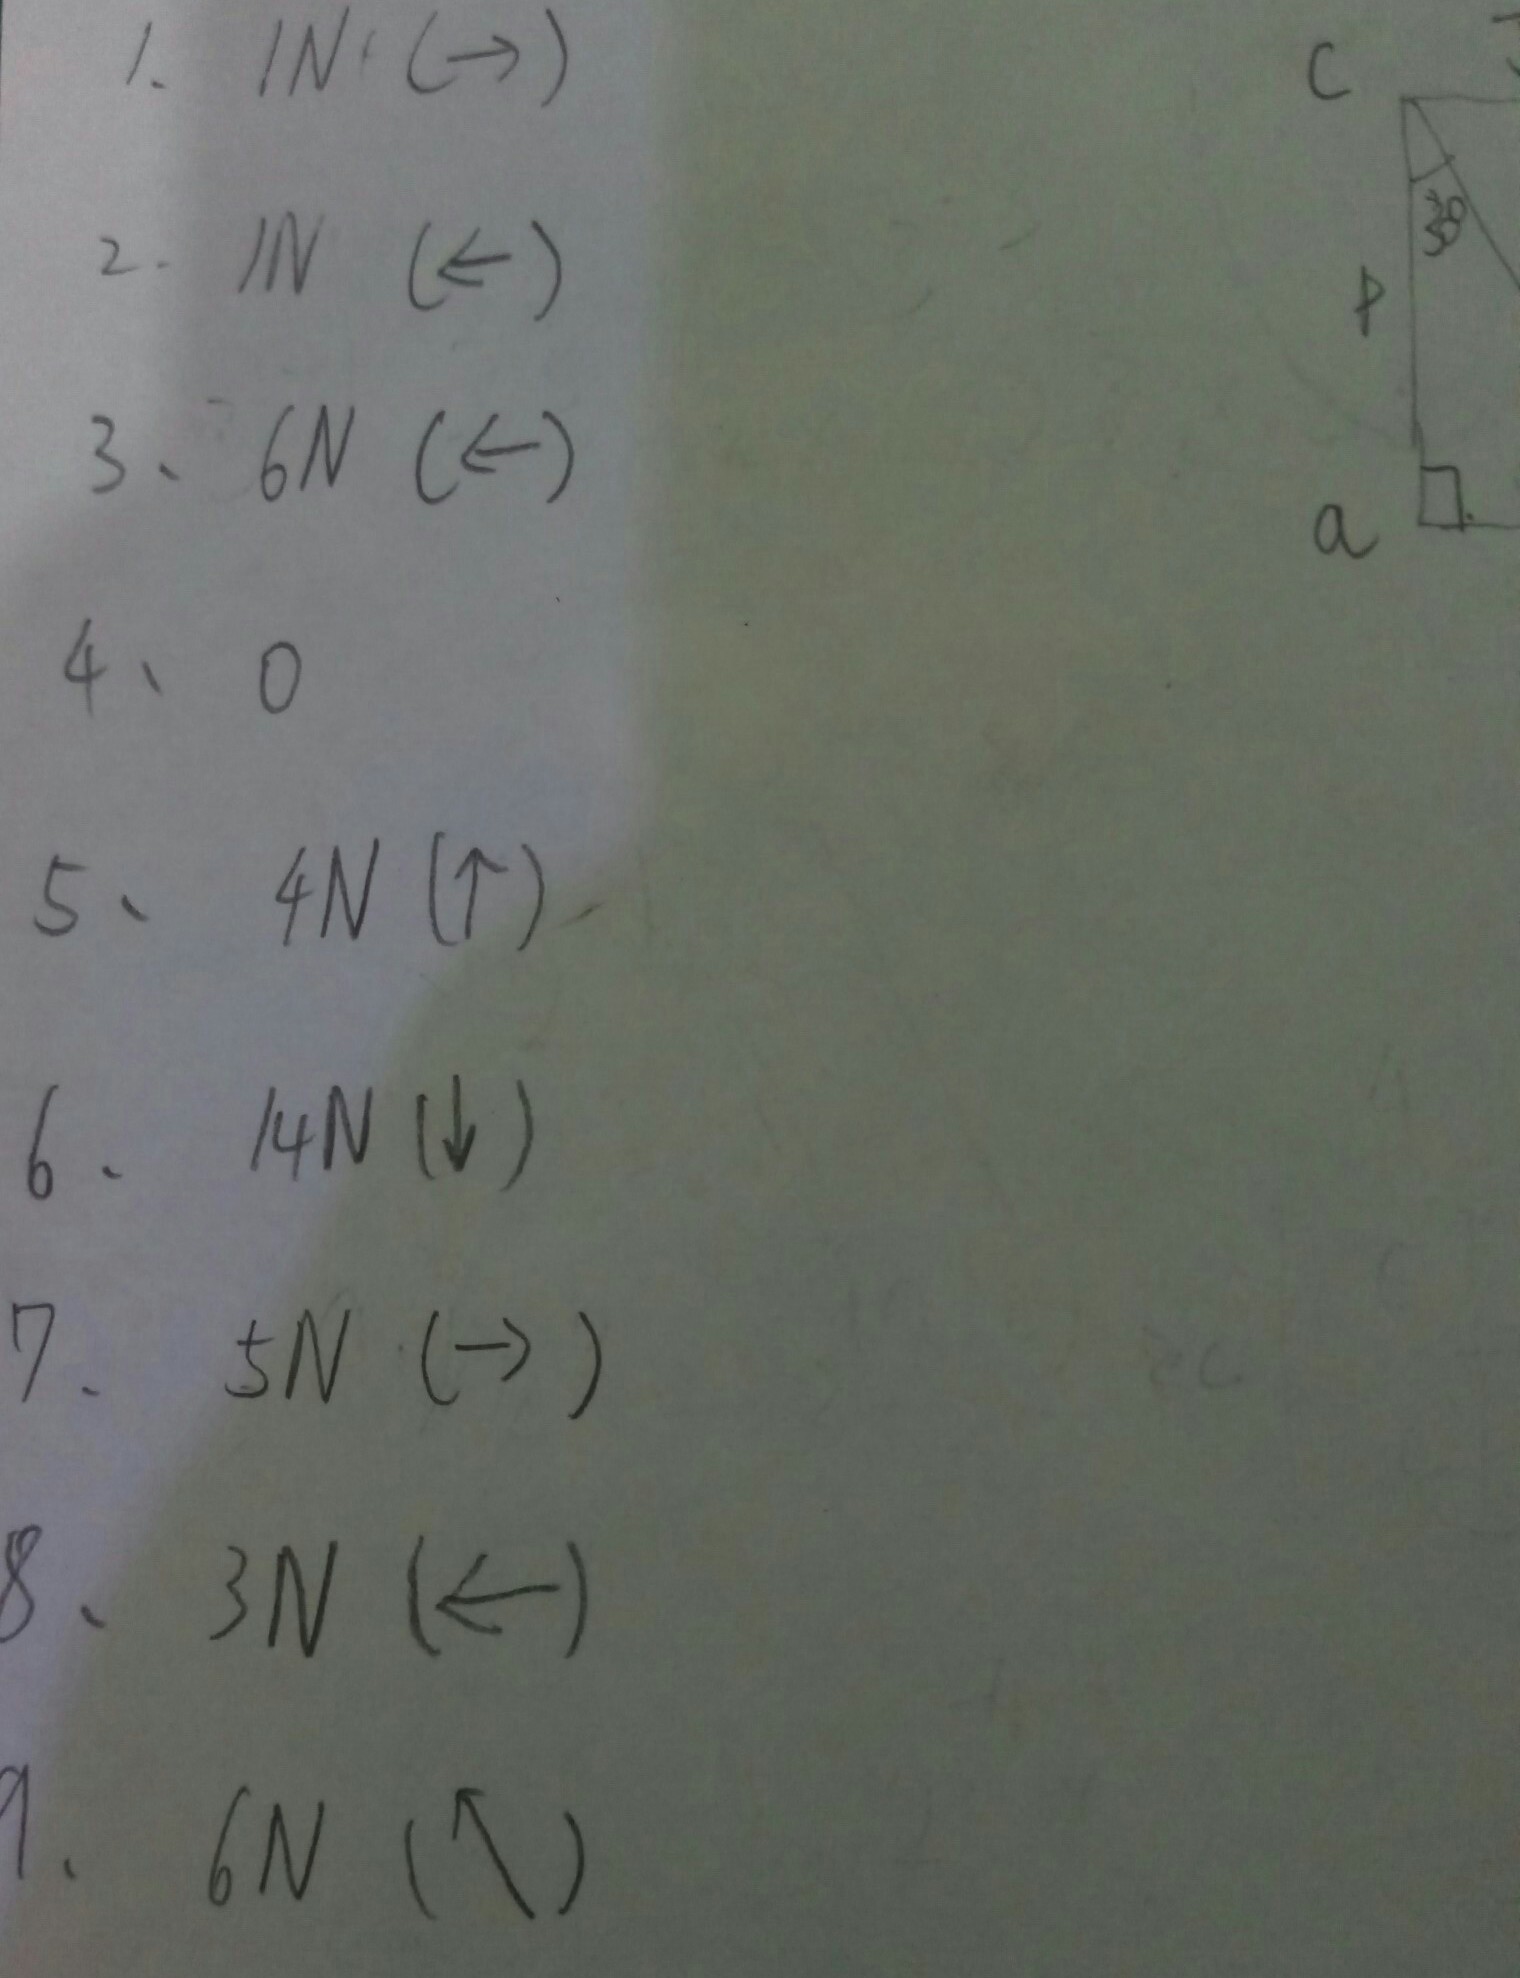 1. 1N (→)
2. 1N (←)
3、 6N (←)
4、 0
5、 4N (↑)
6、 14N (↓)
7、 5N (→)
8、 3N (←)
9、 6N (↖)
C
30
P
a